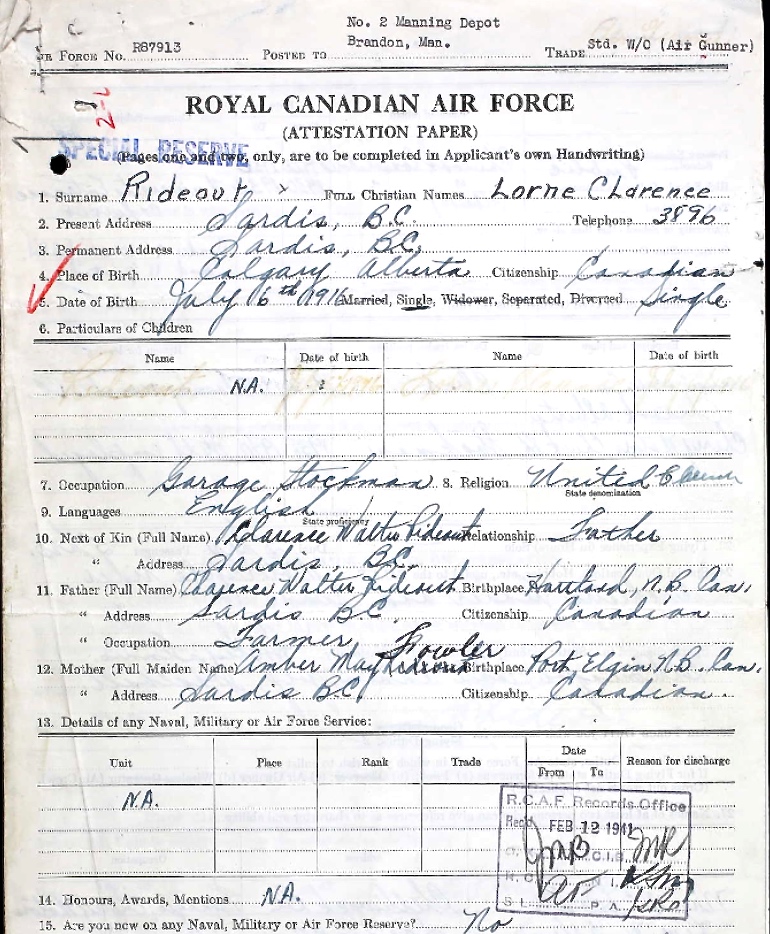 No. 2 Manning Depot
AIR FORCE No. R87913 POSTED TO Brandon, Man. TRADE Std. W/O (Air Gunner)
2-L
ROYAL CANADIAN AIR FORCE
(ATTESTATION PAPER)
SPECIAL RESERVE
(Pages one and two, only, are to be completed in Applicant's own Handwriting)
1. Surname Rideout FULL Christian Names Lorne CLarence
2. Present Address Sardis, B.C. Telephone 3896
3. Permanent Address Sardis, B.C.
4. Place of Birth Calgary Alberta Citizenship Canadian
5. Date of Birth July 6th 1916 Married, Single, Widower, Separated, Divorced Single
6. Particulars of Children
Name Date of birth Name Date of birth
N.A.
7. Occupation Garage Stockman 8. Religion United Church
State denomination
9. Languages English
State proficiency
10. Next of Kin (Full Name) Clarence Walter Rideout Relationship Father
" Address Sardis, B.C.
11. Father (Full Name) Clarence Walter Rideout Birthplace Hartland, N.B. Can.
" Address Sardis B.C. Citizenship Canadian
" Occupation Farmer
Fowler
12. Mother (Full Maiden Name) Amber May Rideout Birthplace Port Elgin N.B. Can.
" Address Sardis B.C. Citizenship Canadian.
13. Details of any Naval, Military or Air Force Service:
Unit Place Rank Trade Date From To Reason for discharge
N.A.
R.C.A.F. Records Office
Recd FEB 12 1941
C.I.B.
P.A.
14. Honours, Awards, Mentions N.A.
15. Are you now on any Naval, Military or Air Force Reserve? No